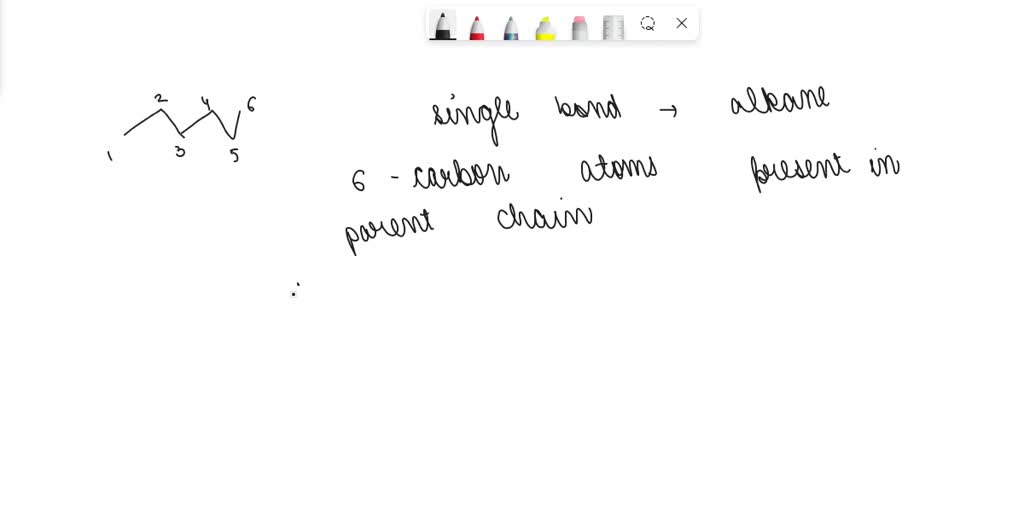 2 4 6
1 3 5
single bond → alkane
6 - carbon atoms present in
parent chain